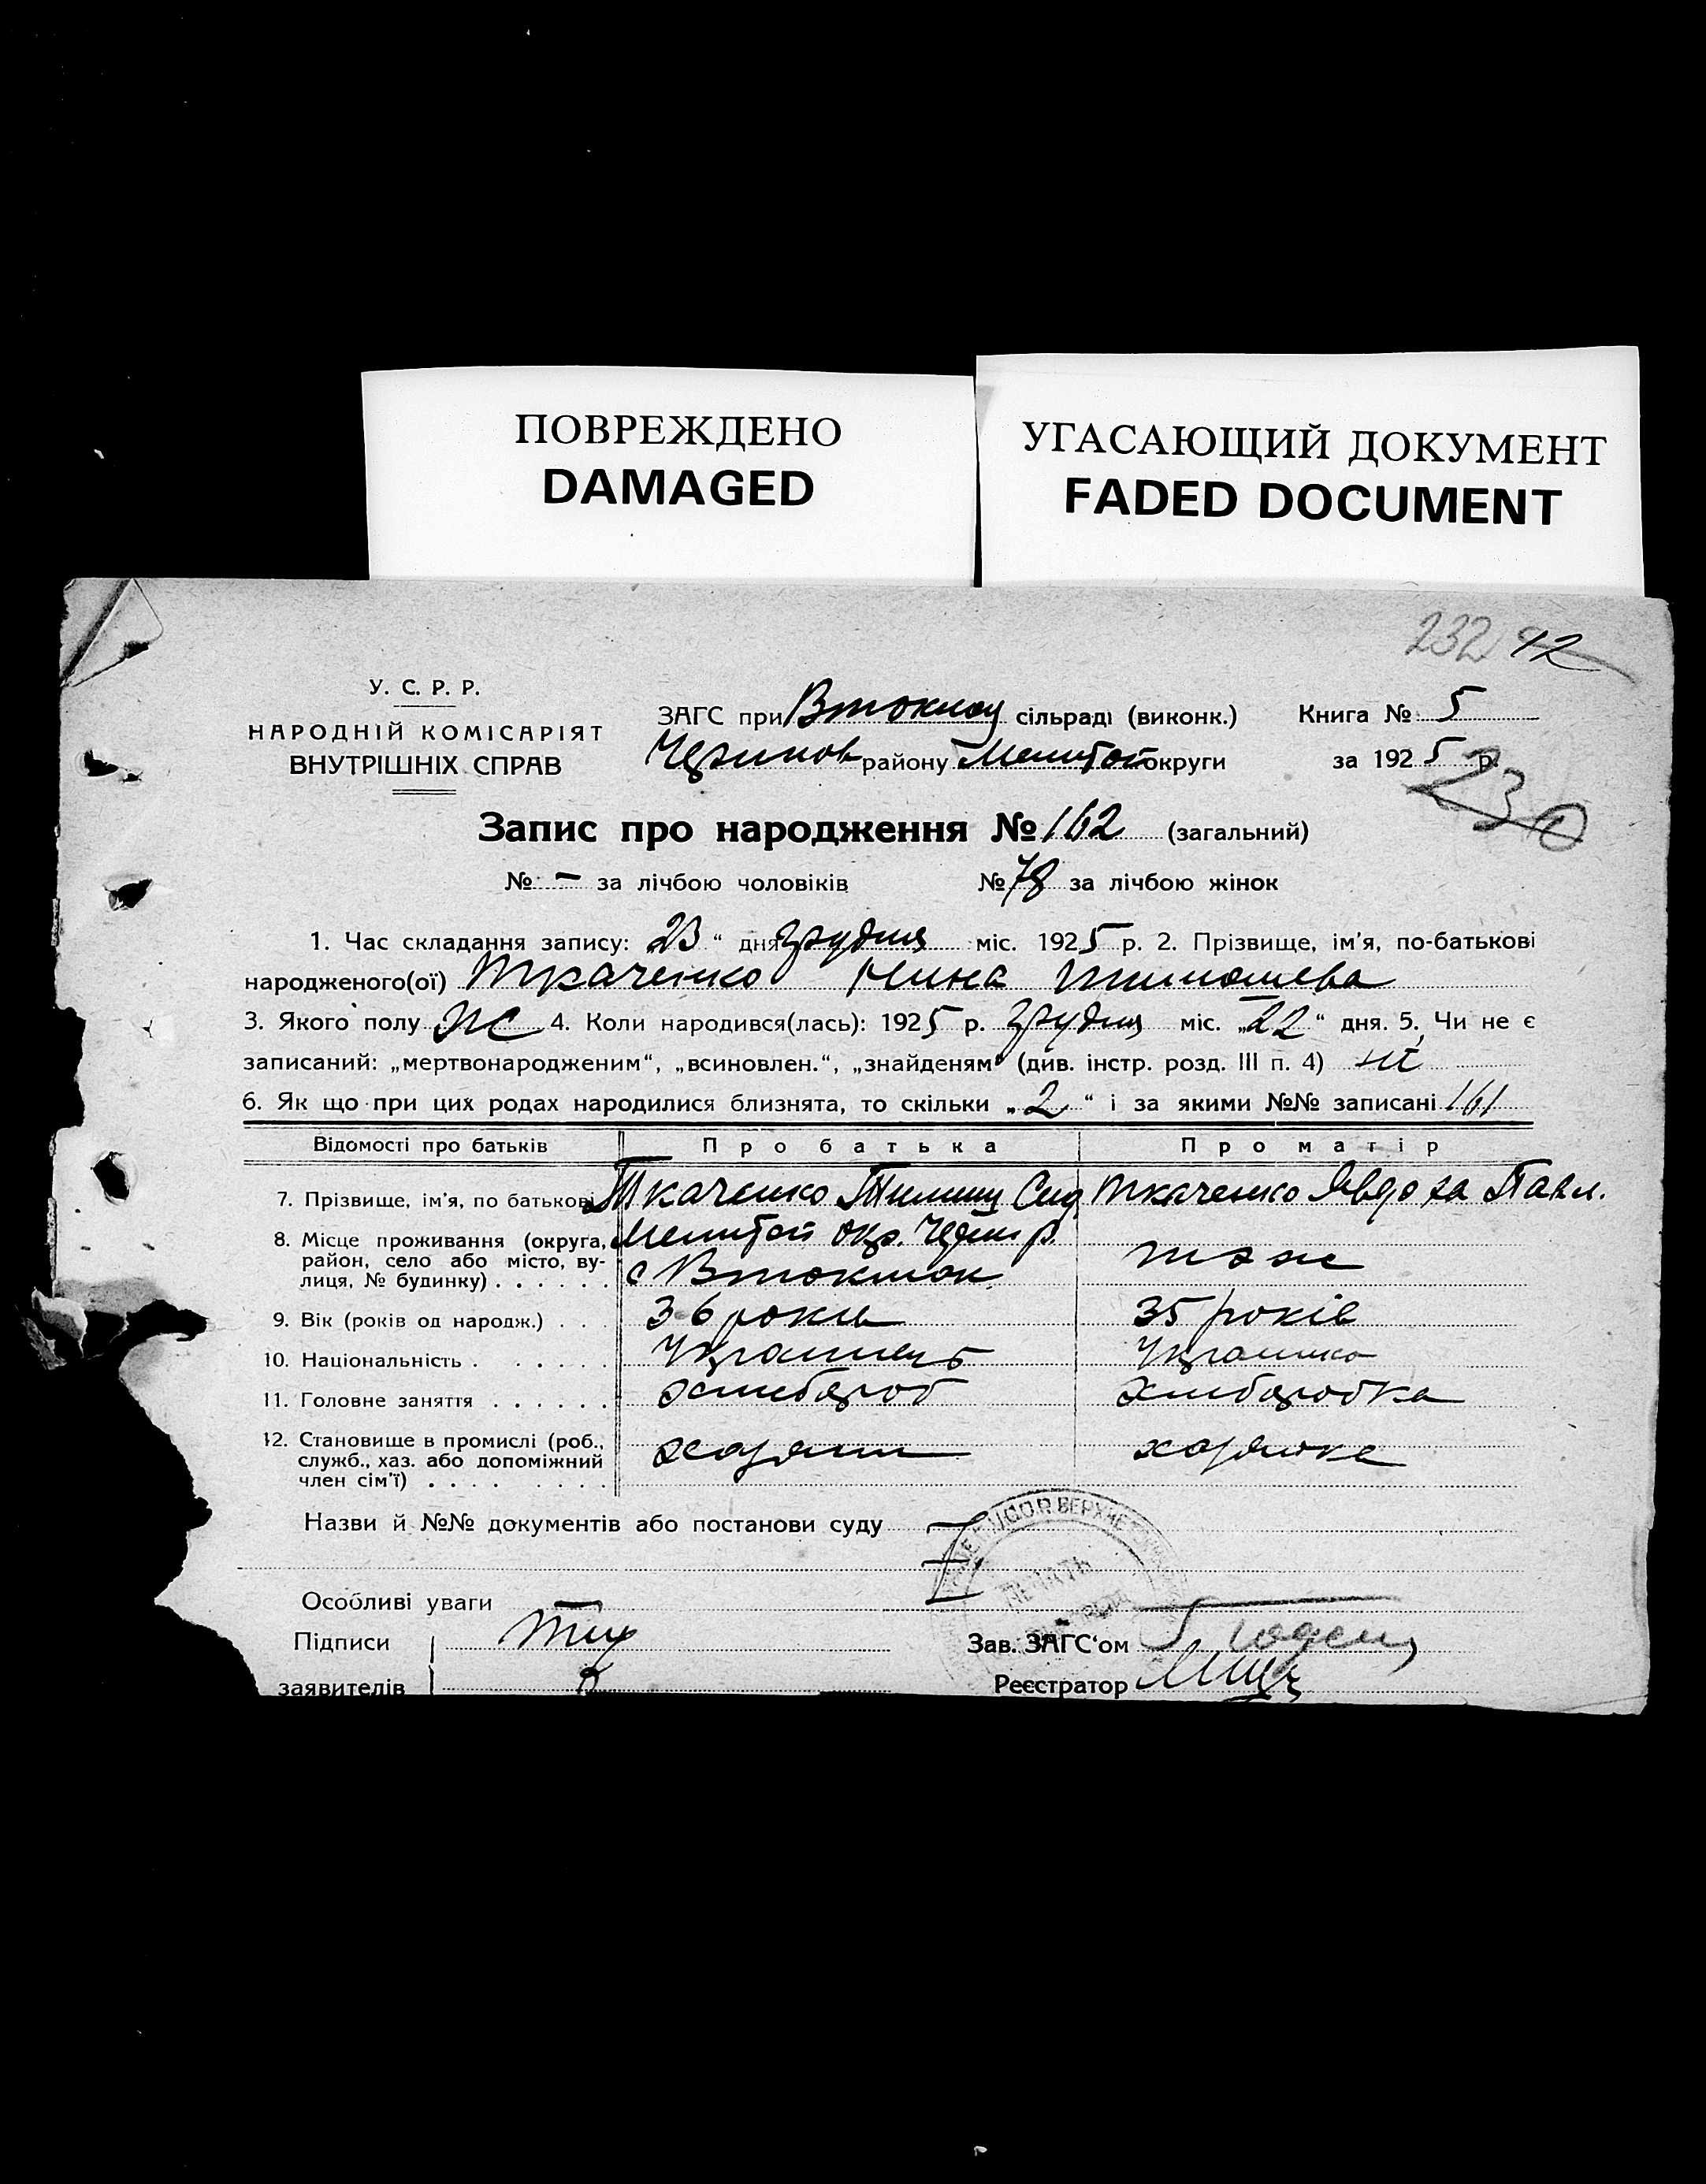 ПОВРЕЖДЕНО
DAMAGED
УГАСАЮЩИЙ ДОКУМЕНТ
FADED DOCUMENT
232 42
У. С. Р. Р.
НАРОДНІЙ КОМІСАРІЯТ
ВНУТРІШНІХ СПРАВ
ЗАГС при сільраді (виконк.)
району округи
Книга № 5
за 1925 р.
230
Запис про народження № 162 (загальний)
№ - за лічбою чоловіків № 78 за лічбою жінок
1. Час складання запису: „23“ дня грудня міс. 1925 р. 2. Прізвище, ім'я, по-батькові
народженого(ої) Ткаченко Нина
3. Якого полу Ж 4. Коли народився(лась): 1925 р. грудня міс. „22“ дня. 5. Чи не є
записаний: „мертвонародженим“, „всиновлен.“, „знайденям“ (див. інстр. розд. III п. 4) ні
6. Як що при цих родах народилися близнята, то скільки „2“ і за якими №№ записані 161
Відомості про батьків Про батька Про матір
7. Прізвище, ім'я, по батькові Ткаченко Ткаченко Явдоха Павл.
8. Місце проживання (округа, район, село або місто, вулиця, № будинку) . . . . . . Мелитоп окр. р.
с Втокмак
тож
9. Вік (років од народж.) . . . 36 років 35 років
10. Національність . . . . . . Українець Українка
11. Головне заняття . . . . . . хлибороб хлиборобка
12. Становище в промислі (роб., служб., хаз. або допоміжний член сім'ї) . . . . . . . . хазяин хазяйка
Назви й №№ документів або постанови суду
Особливі уваги
Підписи
заявителів
Зав. ЗАГС'ом
Реєстратор